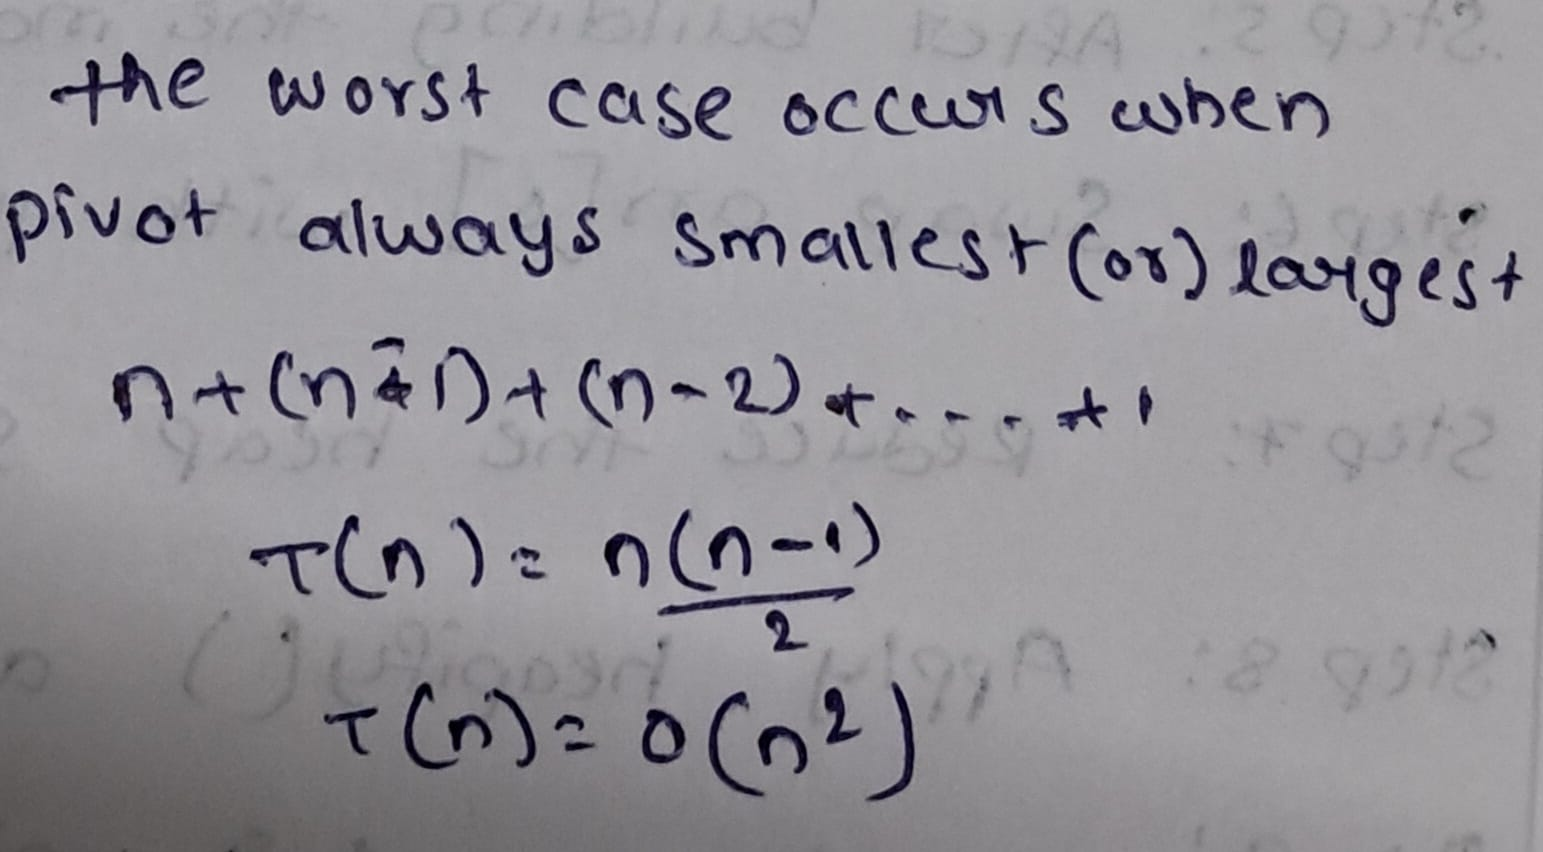 the worst case occurs when
pivot always smallest (or) largest
n + (n - 1) + (n - 2) + .... + 1
T(n) = n(n-1)/2
T(n) = O(n²)